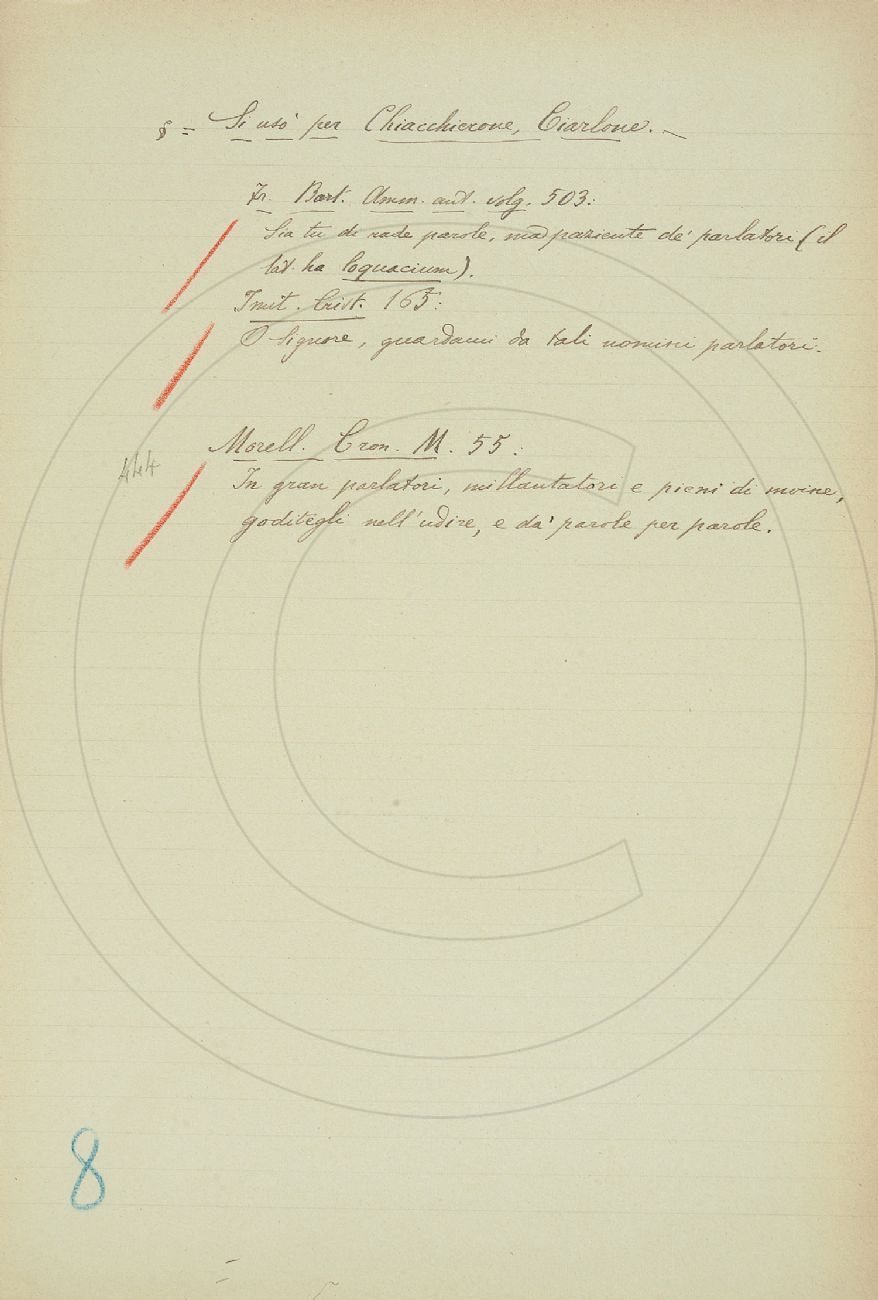 § = Si usò per Chiacchierone, Ciarlone. —
Fr. Bart. Amm. ant. volg. 503:
Sia tu di rade parole, ma paziente de' parlatori (il
lat. ha loquacium).
Imit. Crist. 165:
O Signore, guardami da tali uomini parlatori.
Morell. Cron. M. 55:
444
In gran parlatori, millantatori e pieni di moine,
goditegli nell'udire, e da' parole per parole.
8